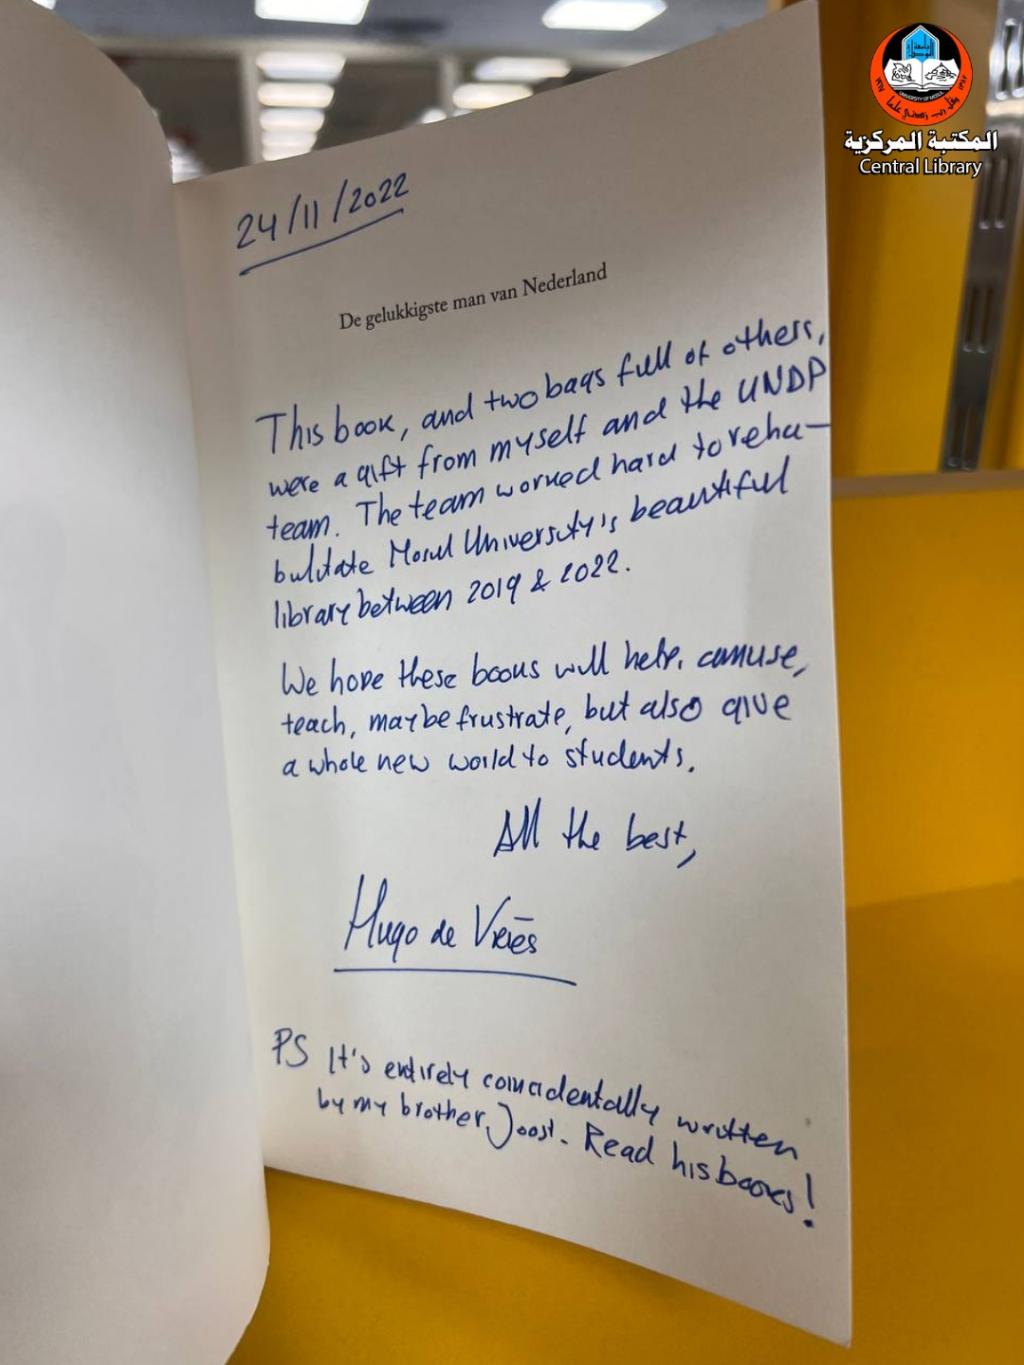 جامعة الموصل
UNIVERSITY OF MOSUL
وقل رب زدني علما
المكتبة المركزية
Central Library
24/11/2022
De gelukkigste man van Nederland
This book, and two bags full of others,
were a gift from myself and the UNDP
team. The team worked hard to reha-
bulitate Mosul University's beautiful
library between 2019 & 2022.
We hope these books will help, amuse,
teach, maybe frustrate, but also give
a whole new world to students.
All the best,
Hugo de Vries
PS It's entirely coincidentally written
by my brother, Joost. Read his books!